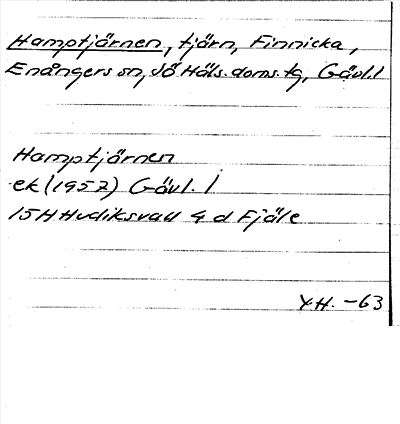 Hamptjärnen, tjärn, Finnicka,
Enångers sn, SÖ Häls. doms. tg, Gävl. l
Hamptjärnen
ek (1957) Gävl. l
15H Hudiksvall 4 d Fjäle
Y.H. -63